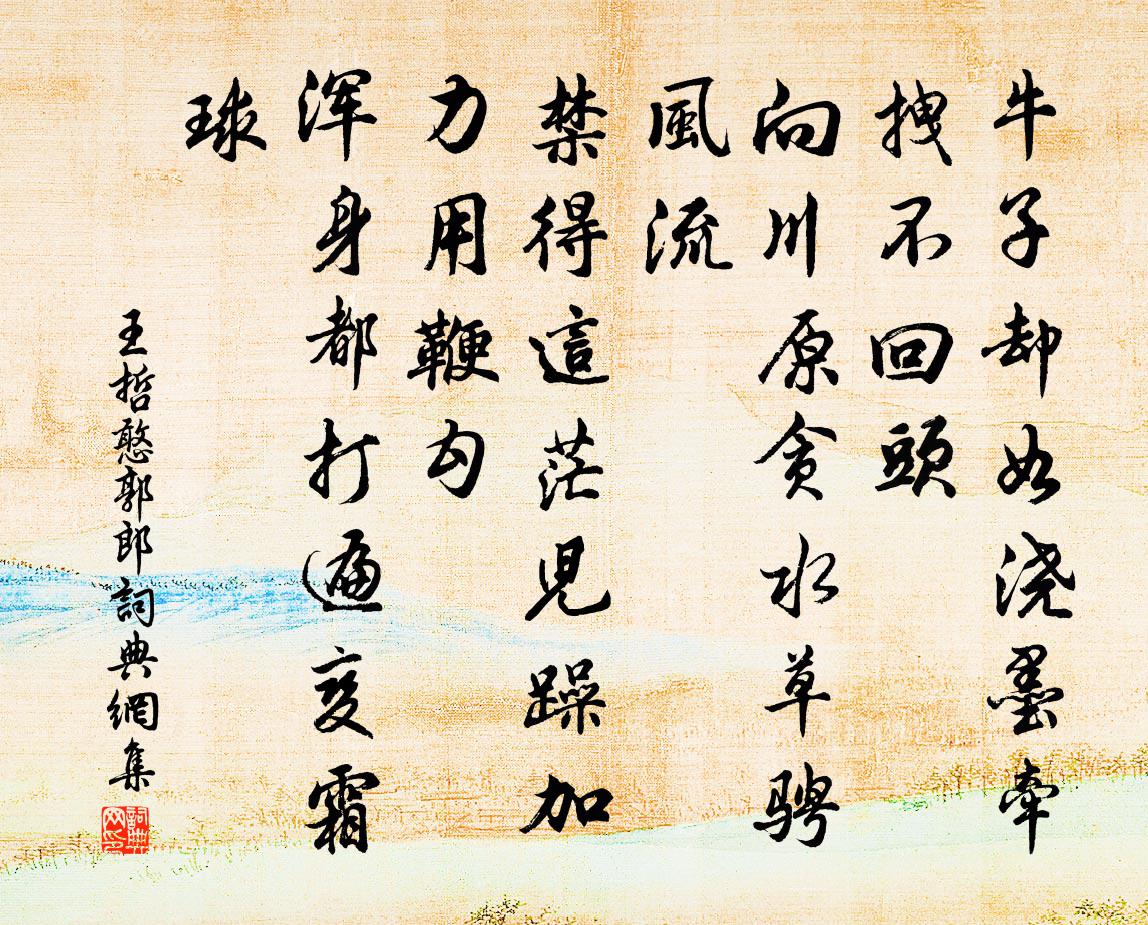 牛子却如浇墨牵
拽不回頭
向川原贪水草骋
風流
禁得這茫児躁加
力用鞭勾
浑身都打遍变霜
球
王哲憨郭郎詞典網集
詞典網印